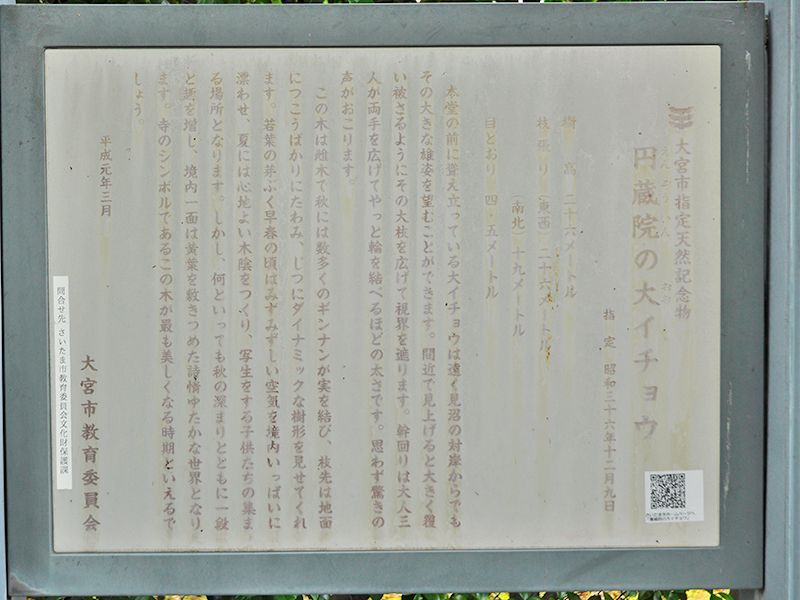 大宮市指定天然記念物
えんぞういん おお
円蔵院の大イチョウ
指定 昭和三十六年十二月九日
樹高 二十六メートル
枝張り(東西)二十六メートル
(南北)十九メートル
目とおり 四・五メートル
本堂の前に聳え立っている大イチョウは遠く見沼の対岸からでも
その大きな雄姿を望むことができます。間近で見上げると大きく覆
い被さるようにその大枝を広げて視界を遮ります。幹回りは大人三
人が両手を広げてやっと輪を結べるほどの太さです。思わず驚きの
声がおこります。
この木は雌木で秋には数多くのギンナンが実を結び、枝先は地面
につこうばかりにたわみ、じつにダイナミックな樹形を見せてくれ
ます。若葉の芽ぶく早春の頃はみずみずしい空気を境内いっぱいに
漂わせ、夏には心地よい木陰をつくり、写生をする子供たちの集ま
る場所となります。しかし、何といっても秋の深まりとともに一段
と趣を増し、境内一面は黄葉を敷きつめた詩情ゆたかな世界となり
ます。寺のシンボルであるこの木が最も美しくなる時期といえるで
しょう。
平成元年三月
大宮市教育委員会
問合せ先 さいたま市教育委員会文化財保護課